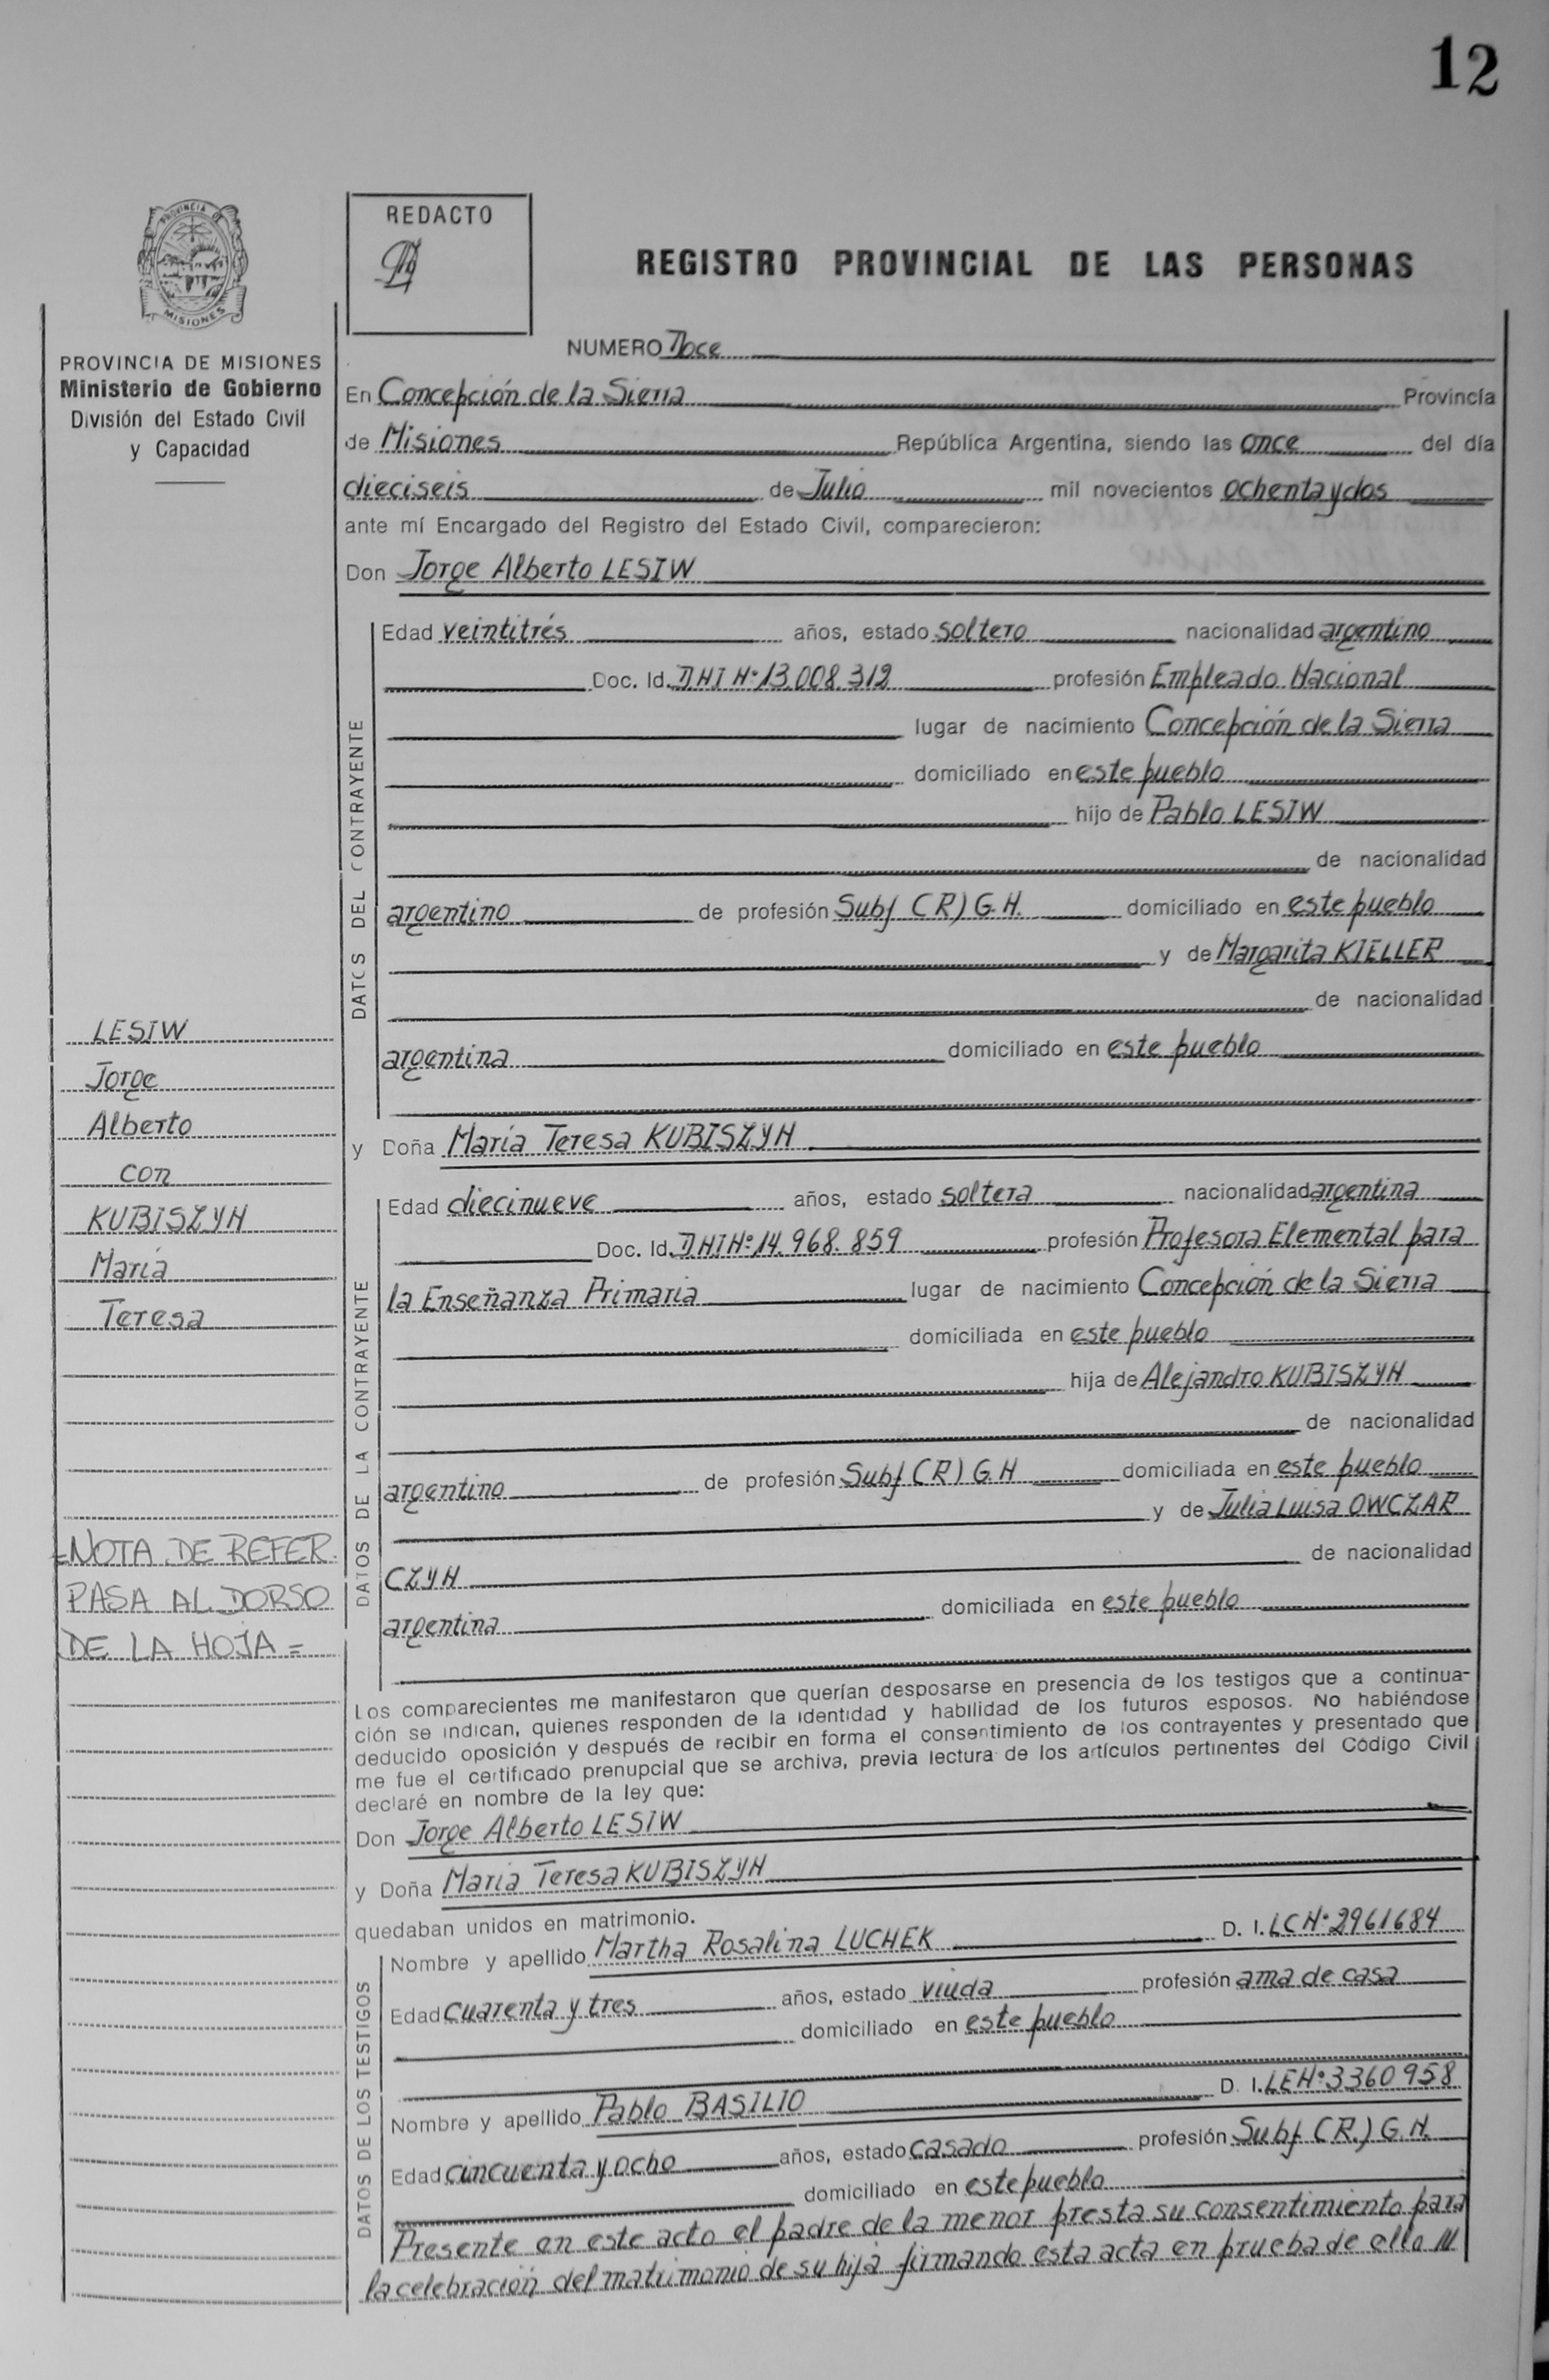 12
PROVINCIA DE MISIONES
REDACTO
REGISTRO PROVINCIAL DE LAS PERSONAS
PROVINCIA DE MISIONES
Ministerio de Gobierno
División del Estado Civil
y Capacidad
NUMERO Doce
En Concepción de la Sierra Provincia
de Misiones República Argentina, siendo las once del día
dieciseis de Julio mil novecientos ochenta y dos
ante mí Encargado del Registro del Estado Civil, comparecieron:
Don Jorge Alberto LESIW
DATOS DEL CONTRAYENTE
Edad veintitrés años, estado soltero nacionalidad argentino
Doc. Id. DNI Nº 13.008.319 profesión Empleado Nacional
lugar de nacimiento Concepción de la Sierra
domiciliado en este pueblo
hijo de Pablo LESIW
de nacionalidad
argentino de profesión Subf (R) G.N. domiciliado en este pueblo
y de Margarita KIELLER
de nacionalidad
argentina domiciliado en este pueblo
LESIW
Jorge
Alberto
con
KUBISZYN
María
Teresa
y Doña María Teresa KUBISZYN
DATOS DE LA CONTRAYENTE
Edad diecinueve años, estado soltera nacionalidad argentina
Doc. Id. DNI Nº 14.968.859 profesión Profesora Elemental para
la Enseñanza Primaria lugar de nacimiento Concepción de la Sierra
domiciliada en este pueblo
hija de Alejandro KUBISZYN
de nacionalidad
argentino de profesión Subf (R) G.N domiciliada en este pueblo
y de Julia Luisa OWCZAR
CZYN de nacionalidad
argentina domiciliada en este pueblo
=NOTA DE REFER.
PASA AL DORSO
DE LA HOJA=
Los comparecientes me manifestaron que querían desposarse en presencia de los testigos que a continua-
ción se indican, quienes responden de la identidad y habilidad de los futuros esposos. No habiéndose
deducido oposición y después de recibir en forma el consentimiento de los contrayentes y presentado que
me fue el certificado prenupcial que se archiva, previa lectura de los artículos pertinentes del Código Civil
declaré en nombre de la ley que:
Don Jorge Alberto LESIW
y Doña María Teresa KUBISZYN
quedaban unidos en matrimonio.
DATOS DE LOS TESTIGOS
Nombre y apellido Martha Rosalina LUCHEK D. I. LC Nº 2961684
Edad cuarenta y tres años, estado viuda profesión ama de casa
domiciliado en este pueblo
Nombre y apellido Pablo BASILIO D. I. LE Nº 3360958
Edad cincuenta y ocho años, estado casado profesión Subf (R.) G.N.
domiciliado en este pueblo
Presente en este acto el padre de la menor presta su consentimiento para
la celebración del matrimonio de su hija firmando esta acta en prueba de ello ///